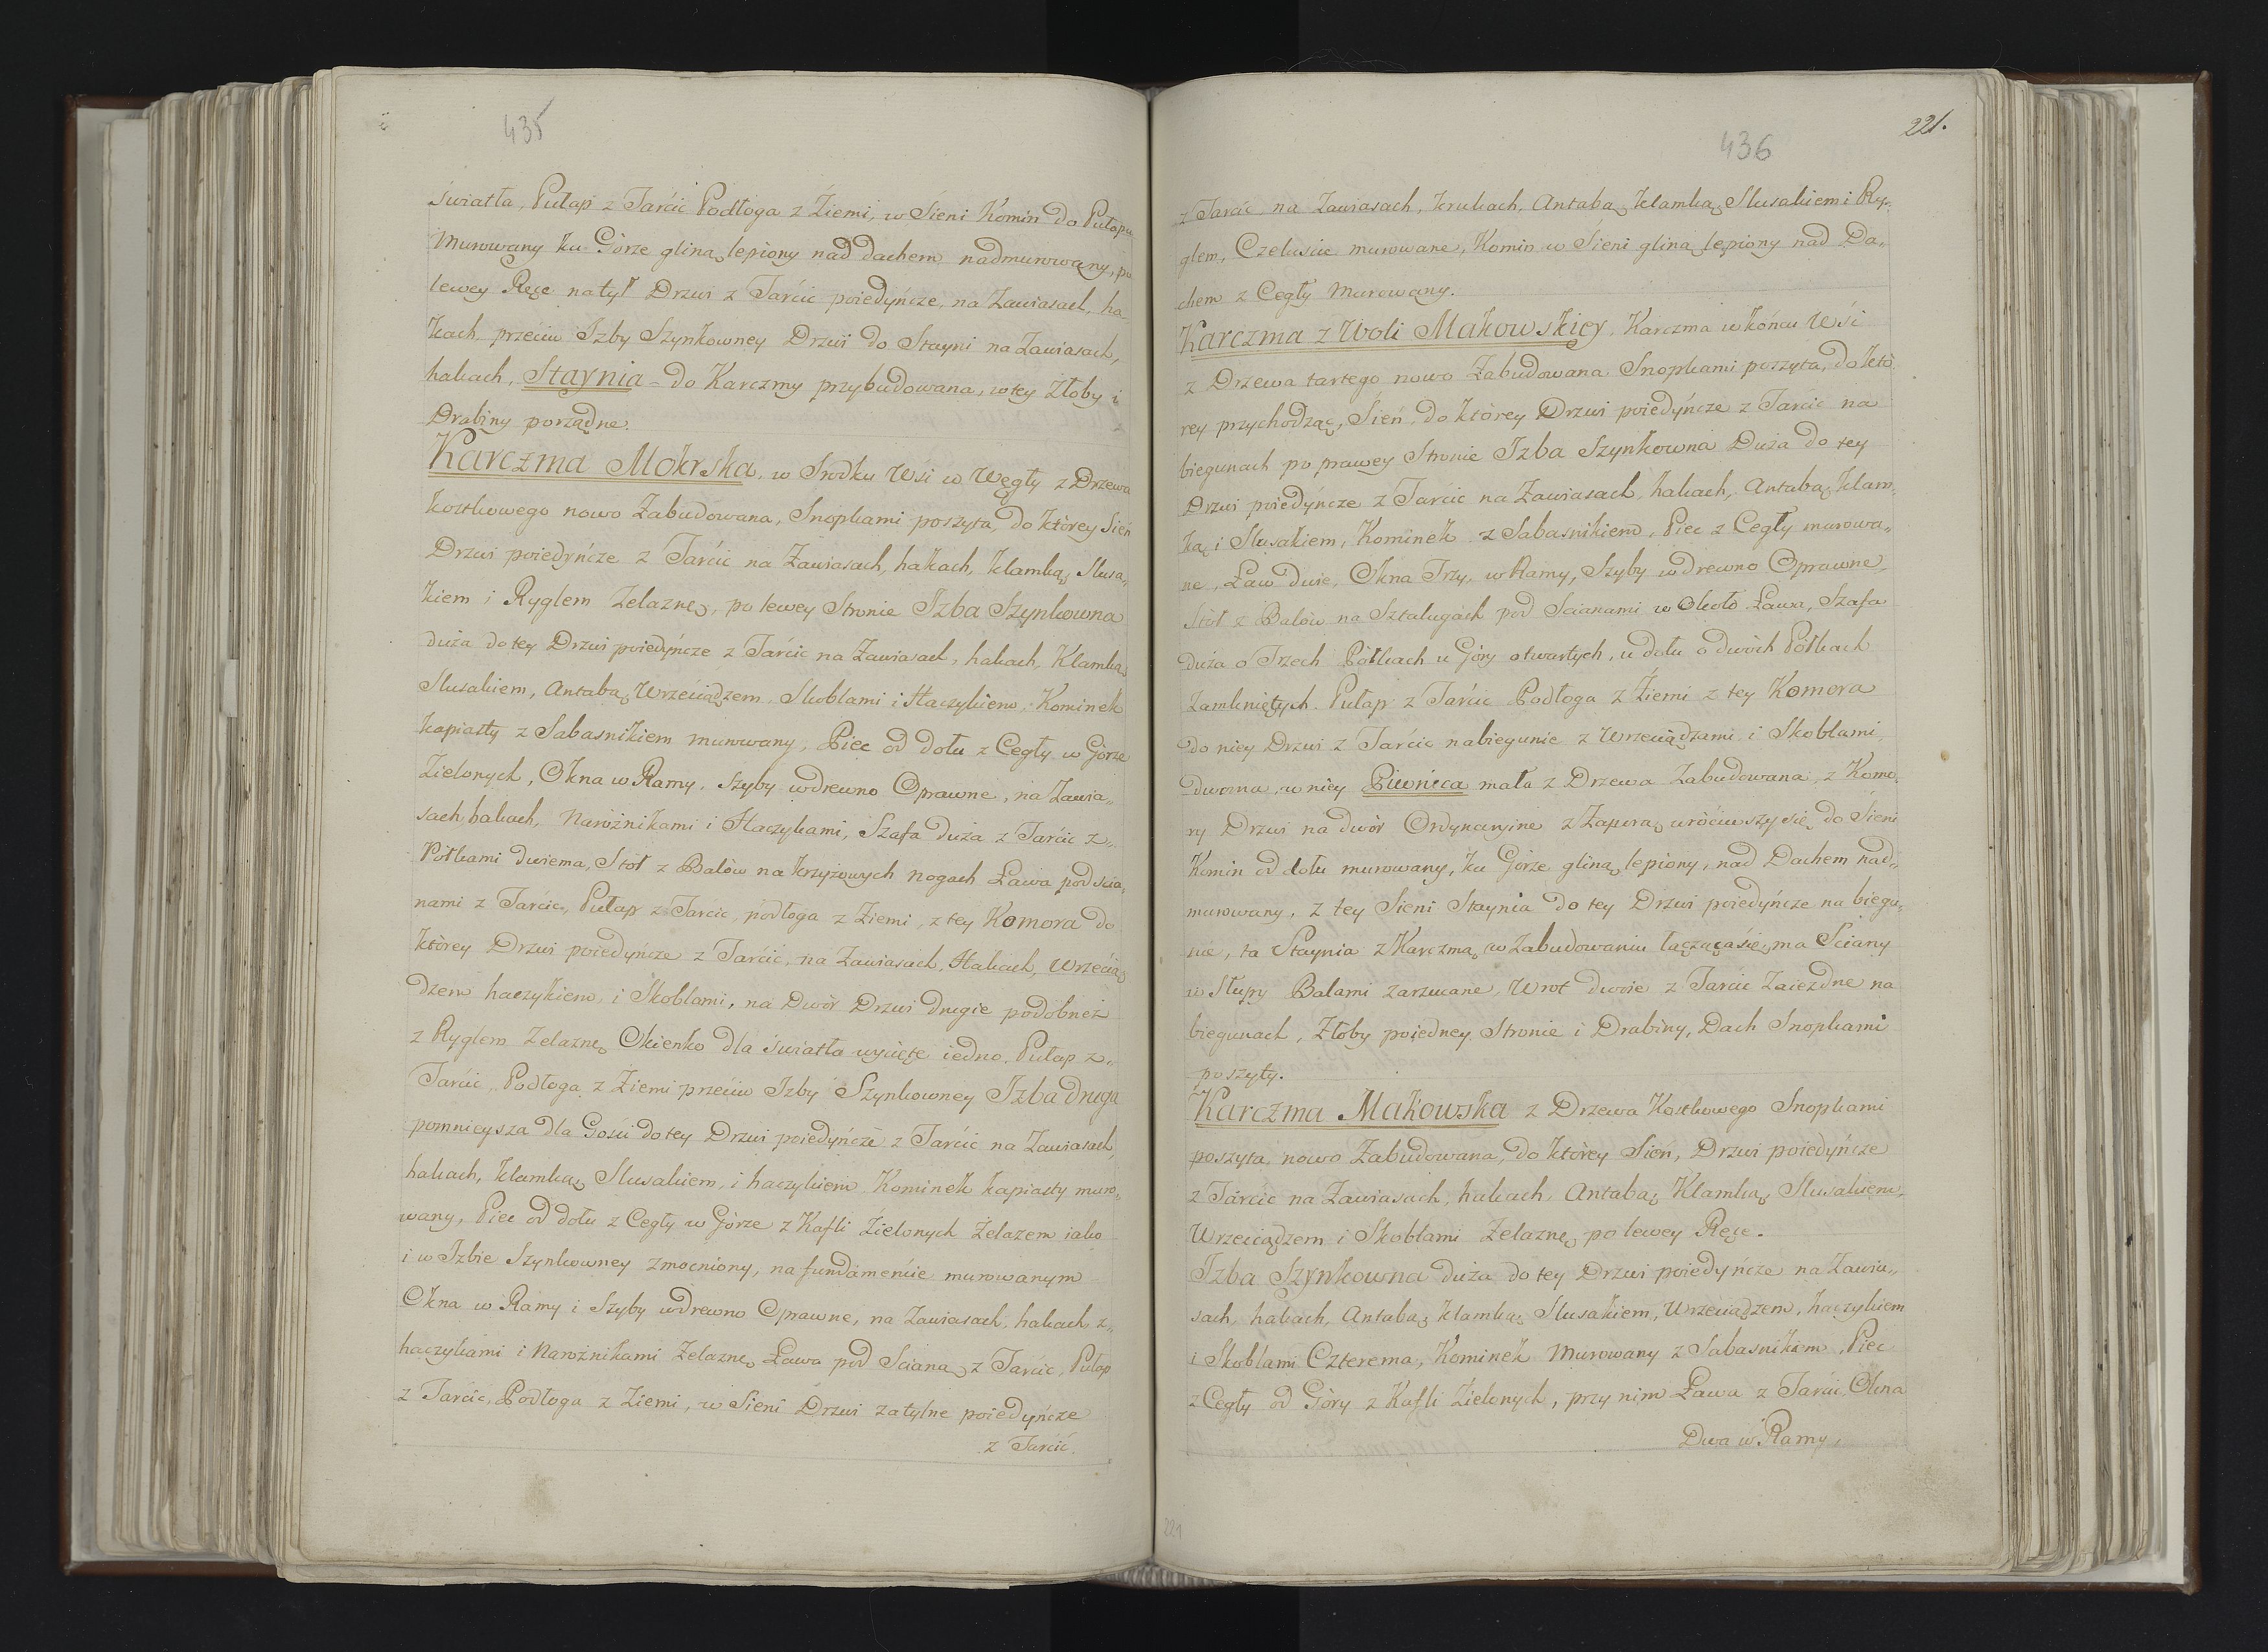 435
światła, Pułap z Tarćic Podłoga z Ziemi, w Sieni Komin do Pułapu
Murowany ku Górze gliną lepiony nad dachem nadmurowany, po
lewey Ręce natył Drzwi z Tarćic poiedyńcze, na Zawiasach, ha-
kach, przećiw Izby Szynkowney Drzwi do Stayni na Zawiasach,
hakach, Staynia - do Karczmy przybudowana, w tey Żłoby i
Drabiny porządne.
Karczma Mokrska, w Srodku Wśi w Węgły z Drzewa
kostkowego nowo Zabudowana, Snopkami poszyta, do ktòrey Sień
Drzwi poiedyńcze z Tarćic na Zawiasach, hakach, klamką, Slusa„
kiem i Ryglem Zelazne, po lewey Stronie Izba Szynkowna
duża do tey Drzwi poiedyńcze z Tarćic na Zawiasach, hakach, Klamką
Slusakiem, Antabą, Wrzećiądzem, Skoblami i Haczykiem, Kominek
kapiasty z Sabasnikiem murowany, Piec od dołu z Cegły w Górze
Zielonych, Okna w Ramy, szyby wdrewno Oprawne, na Zawia„
sach, hakach, Narożnikami i Haczykami, Szafa duża z Tarćic z„
Połkami dwiema, Stół z Balów na krzyżowych nogach Ława pod scia„
nami z Tarćic, Pułap z Tarcic, podłoga z Ziemi, z tey Komora do
ktòrey Drzwi poiedyńcze z Tarćic, na Zawiasach, Hakach, Wrzecią
dzem haczykiem, i Skoblami, na Dwór Drzwi drugie podobnież
z Ryglem Zelazne, Okienko dla światła wycięte iedno, Pułap z„
Tarćic, Podłoga z Ziemi przećiw Izby Szynkowney Izba druga
pomnieysza dla Gosci do tey Drzwi poiedyńcze z Tarćic na Zawiasach,
hakach, klamką, Slusakiem, i haczykiem Kominek kapiasty muro„
wany, Piec od dołu z Cegły w Górze z Kafli Zielonych Żelazem iako
i w Izbie Szynkowney zmocniony, na fundamenćie murowanym
Okna w Ramy i Szyby wdrewno Oprawne, na Zawiasach, hakach, z„
haczykami i Narożnikami Zelazne, Ława pod Scianą z Tarćic, Pułap
z Tarćic, Podłoga z Ziemi, w Sieni Drzwi zatylne poiedyńcze
z Tarćić.
221.
436
z Tarćic, na Zawiasach, krukach, Antabą, klamką, Slusakiem i Ry„
glem, Czelusćie murowane, Komin w Sieni gliną lepiony nad Da„
chem z Cegły Murowany.
Karczma z Woli Makowskiey, Karczma w końcu Wśi
z Drzewa tartego nowo Zabudowana Snopkami poszyta, do któ
rey przychodząc, Sień, do ktòrey Drzwi poiedyńcze z Tarćic na
biegunach po prawey Stronie Izba Szynkowna Duża do tey
Drzwi poiedyńcze z Tarćic na Zawiasach, hakach, Antabą, klam„
ką, i Slusakiem, Kominek z Sabasnikiem, Piec z Cegły murowa„
ne, Ław dwie, Okna Trzy, w Ramy, Szyby wdrewno Oprawne,
Stół z Balów na Sztalugach pod Scianami w Około Ława, Szafa
duża o Trzech Półkach u Góry otwartych, u dołu o dwóch Półkach
Zamkniętych. Pułap z Tarćic Podłoga z Ziemi z tey Komora
do niey Drzwi z Tarćic nabiegunie z Wrzeciądzami i Skoblami,
dwoma, w niey Piwnica mała z Drzewa Zabudowana, z Komo„
ry Drzwi na dwór Ordynaryine z Zaporą, wróćiwszy się do Sieni
Komin od dołu murowany, ku Górze gliną lepiony, nad Dachem nad„
murowany, z tey Sieni Staynia do tey Drzwi poiedyńcze na biegu„
nie, ta Staynia z Karczmą w Zabudowaniu łącząca się, ma Sciany
w Słupy Balami zarzucane, Wrot dwoie z Tarćic Zaiezdne na
biegunach, Żłoby poiedney Stronie i Drabiny, Dach Snopkami
poszyty.
Karczma Makowska z Drzewa Kostkowego Snopkami
poszyta, nowo Zabudowana, do ktòrey Sień, Drzwi poiedyńcze
z Tárcic na Zawiasach, hakach, Antabą, Klamką, Slusakiem,
Wrzeciądzem i Skoblami Zelazne, po lewey Ręce.
Izba Szynkowna duża do tey Drzwi poiedyńcze na Zawia„
sach, hakach, Antabą, klamką, Slusakiem, Wrzeciądzem, haczykiem
i Skoblami Czterema, Kominek Murowany z Sabasnikiem, Piec
z Cegły od Góry z Kafli Zielonych, przy nim Ława z Tarćic, Okna
Dwa w Ramy,
221